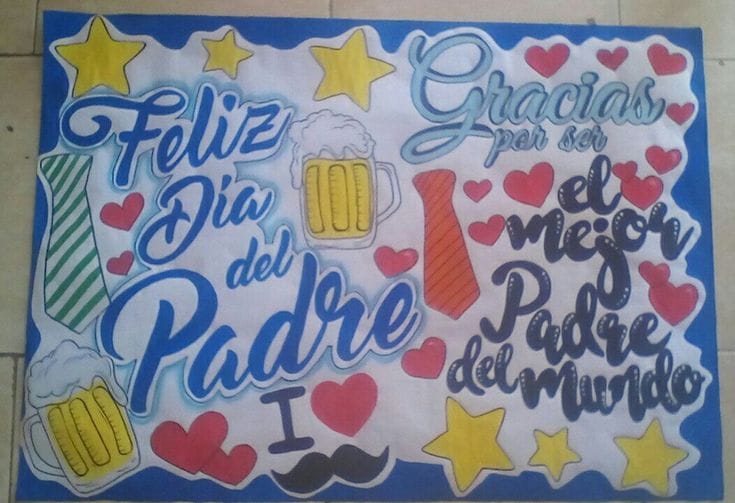 Feliz
Día
del
Padre
I
Gracias
por ser
el
mejor
Padre
del mundo